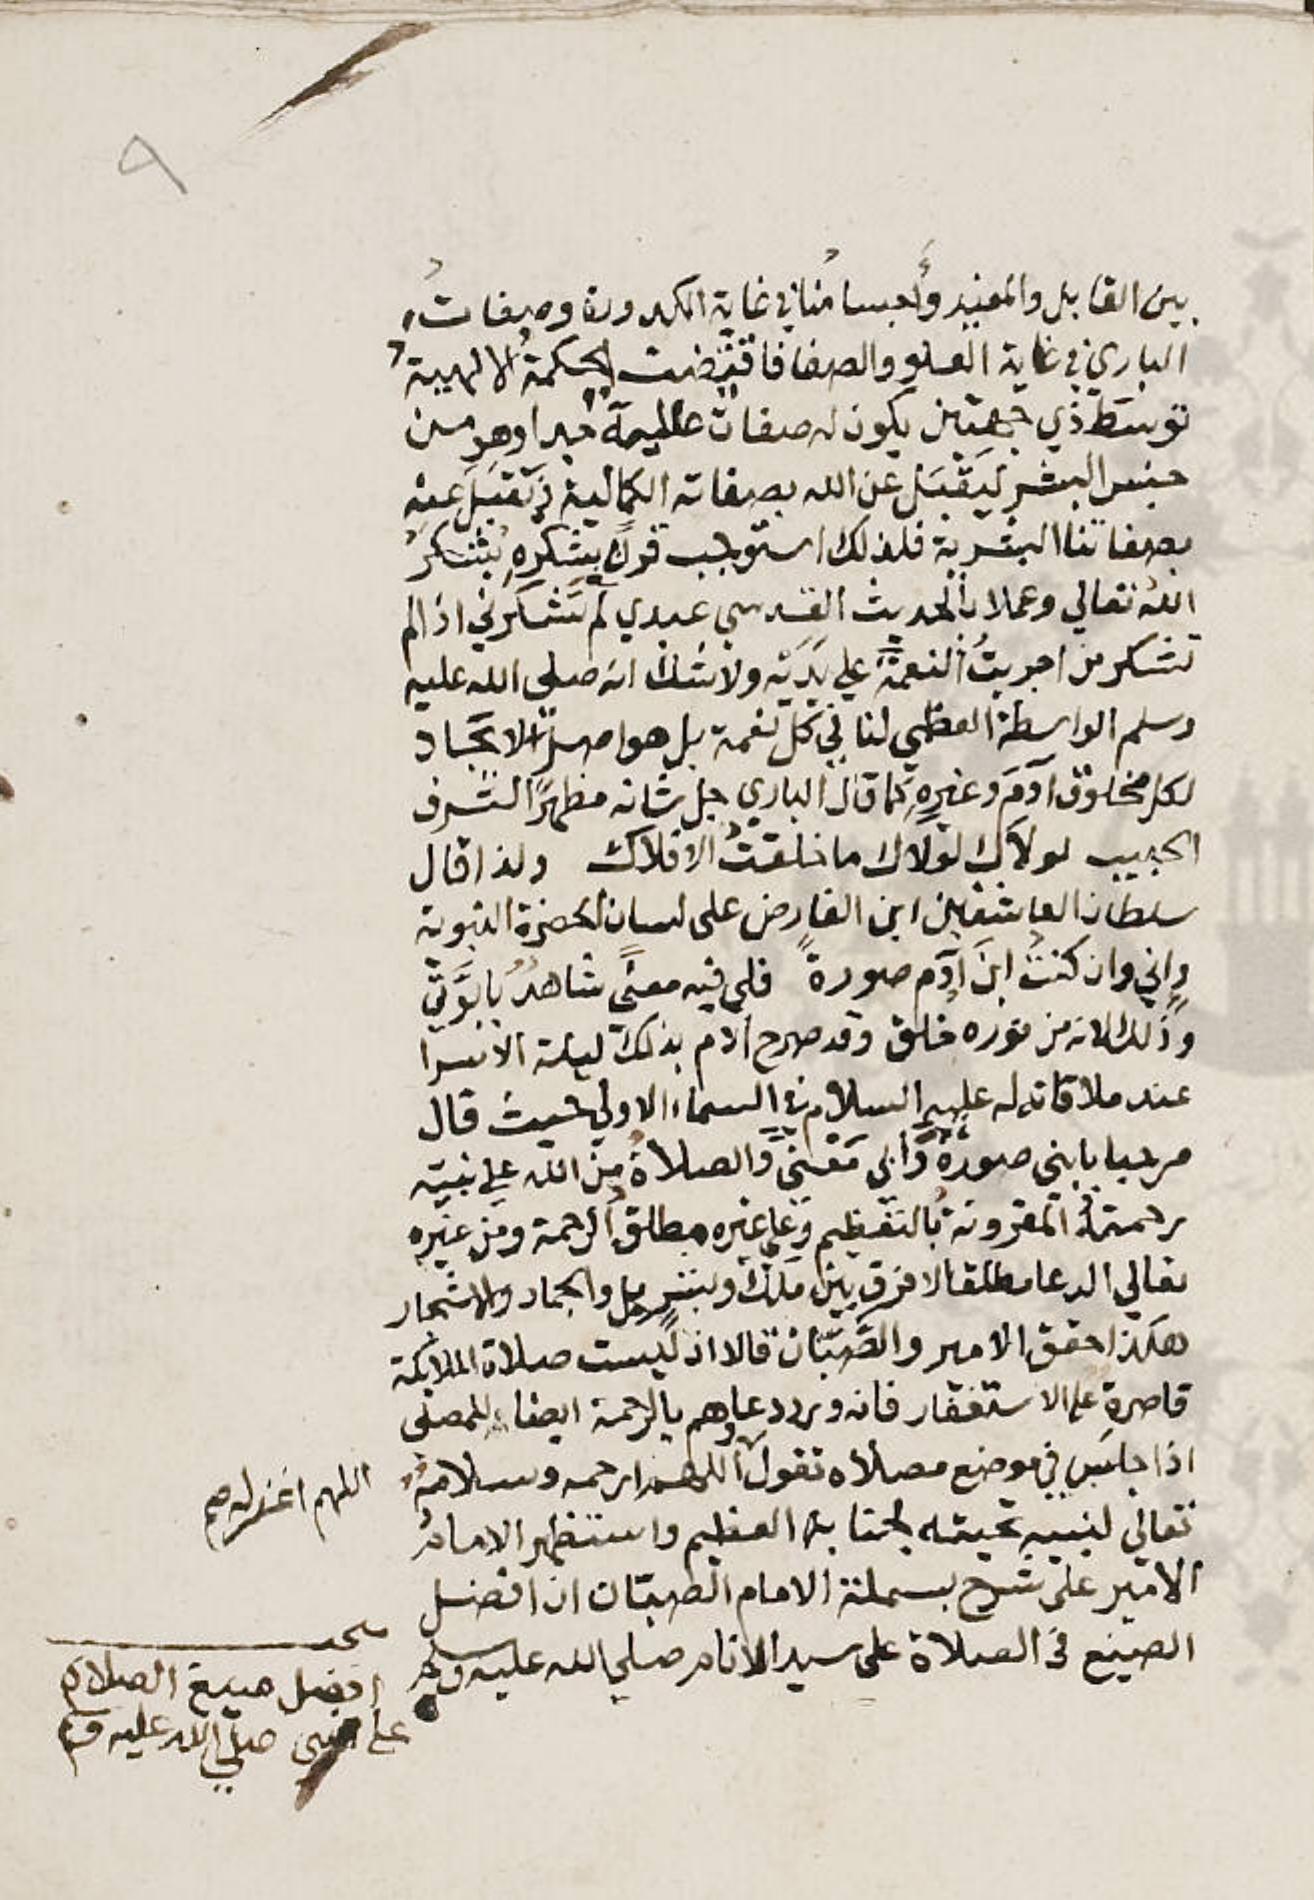 ٩
بين القابل والمفيد وأجسامنا في غاية الكدورة وصفات
الباري في غاية العلو والصفا فاقتضت الحكمة الالهية
توسط ذي جهتين يكون له صفات عالية جدا وهو من
جنس البشر ليقبل عن الله بصفاته الكمالية ونقبل عنه
بصفاتنا البشرية فلذلك استوجب قرن شكره بشكر
الله تعالي وعملا بالحديث القدسي عبدي لم تشكرني اذا لم
تشكر من اجريت النعمة علي يديه ولا شك انه صلى الله عليه
وسلم الواسطة العظمي لنا في كل نعمة بل هو اصل الايجاد
لكل مخلوق آدم وغيره كما قال الباري جل شانه مظهرا لشرف
الحبيب لولاك لولاك ما خلقت الافلاك ولذا قال
سلطان العاشقين ابن الفارض على لسان الحضرة النبوية
واني وان كنت ابن آدم صورة فلي فيه معنى شاهد بابوتي
وذلك لانه من نوره خلق وقد صرح ادم بذلك ليلة الاسرا
عند ملاقاته له عليهم السلام في السماء الاولي حيث قال
مرحبا بابني صورة وأبي معنى والصلاة من الله علي نبيه
رحمته المقرونة بالتعظيم وعلي غيره مطلق الرحمة ومن غيره
تعالي الدعا مطلقا لا فرق بين ملك وبشر بل والجماد والاشجار
هكذا حقق الامير والصبان قالا اذ ليست صلاة الملائكة
قاصرة على الاستغفار فانه ورد دعاوهم بالرحمة ايضا للمصلى
اذا جلس في موضع مصلاه تقول اللهم ارحمه وسلامه
اللهم اغفر له صح
تعالي لنبيه تحيته لجنابه العظيم واستظهر الامام
الامير على شرح بسملة الامام الصبان ان افضل
الصيغ في الصلاة على سيد الانام صلي الله عليه وسلم
افضل صيغ الصلاة
على النبي صلي الله عليه وسلم